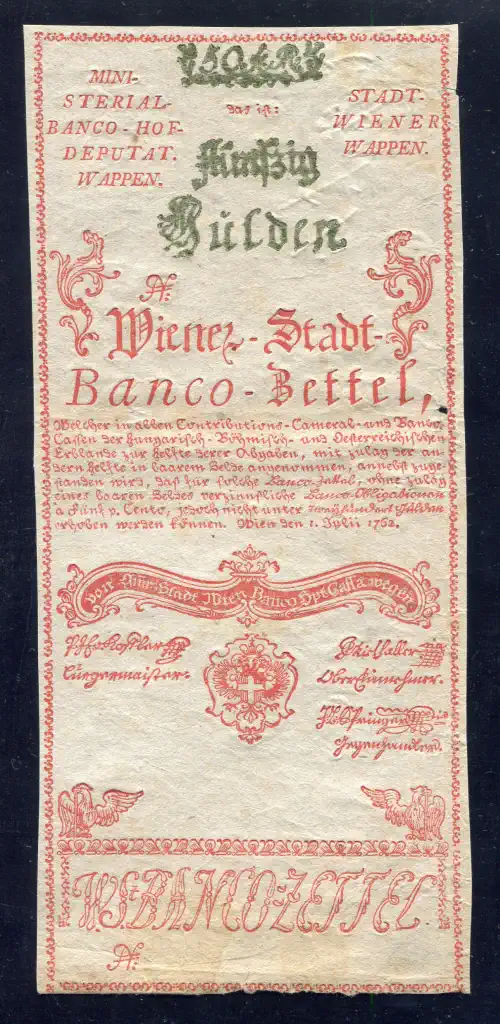 50 fl.
MINI-
STERIAL-
BANCO-HOF-
DEPUTAT.
WAPPEN.
das ist:
STADT-
WIENER
WAPPEN.
Fünfzig
Gulden
N:
Wiener-Stadt-
Banco-Zettel,
Welcher in allen Contributions-Cameral-und Banco,
Cassen der Hungarisch-Böhmisch-und Oesterreichischen
Erblande zur helfte derer Abgaben, mit zulag der an
dern helfte in baarem Gelde angenommen, annebst zuge-
standen wird, daß für solche Banco-Zettel, ohne zulag
eines baaren Geldes verzinsliche Banco-Obligationen
a Fünf p. Cento, jedoch nicht unter zweyhundert Gulden
erhoben werden können. Wien den 1. Julii 1762.
von Stadt Wien Banco Hpt. Cassa wegen
Burgermaister.
Ober Einnehmer.
Gegenhandler.
W.S.BANCO-ZETTEL.
N: